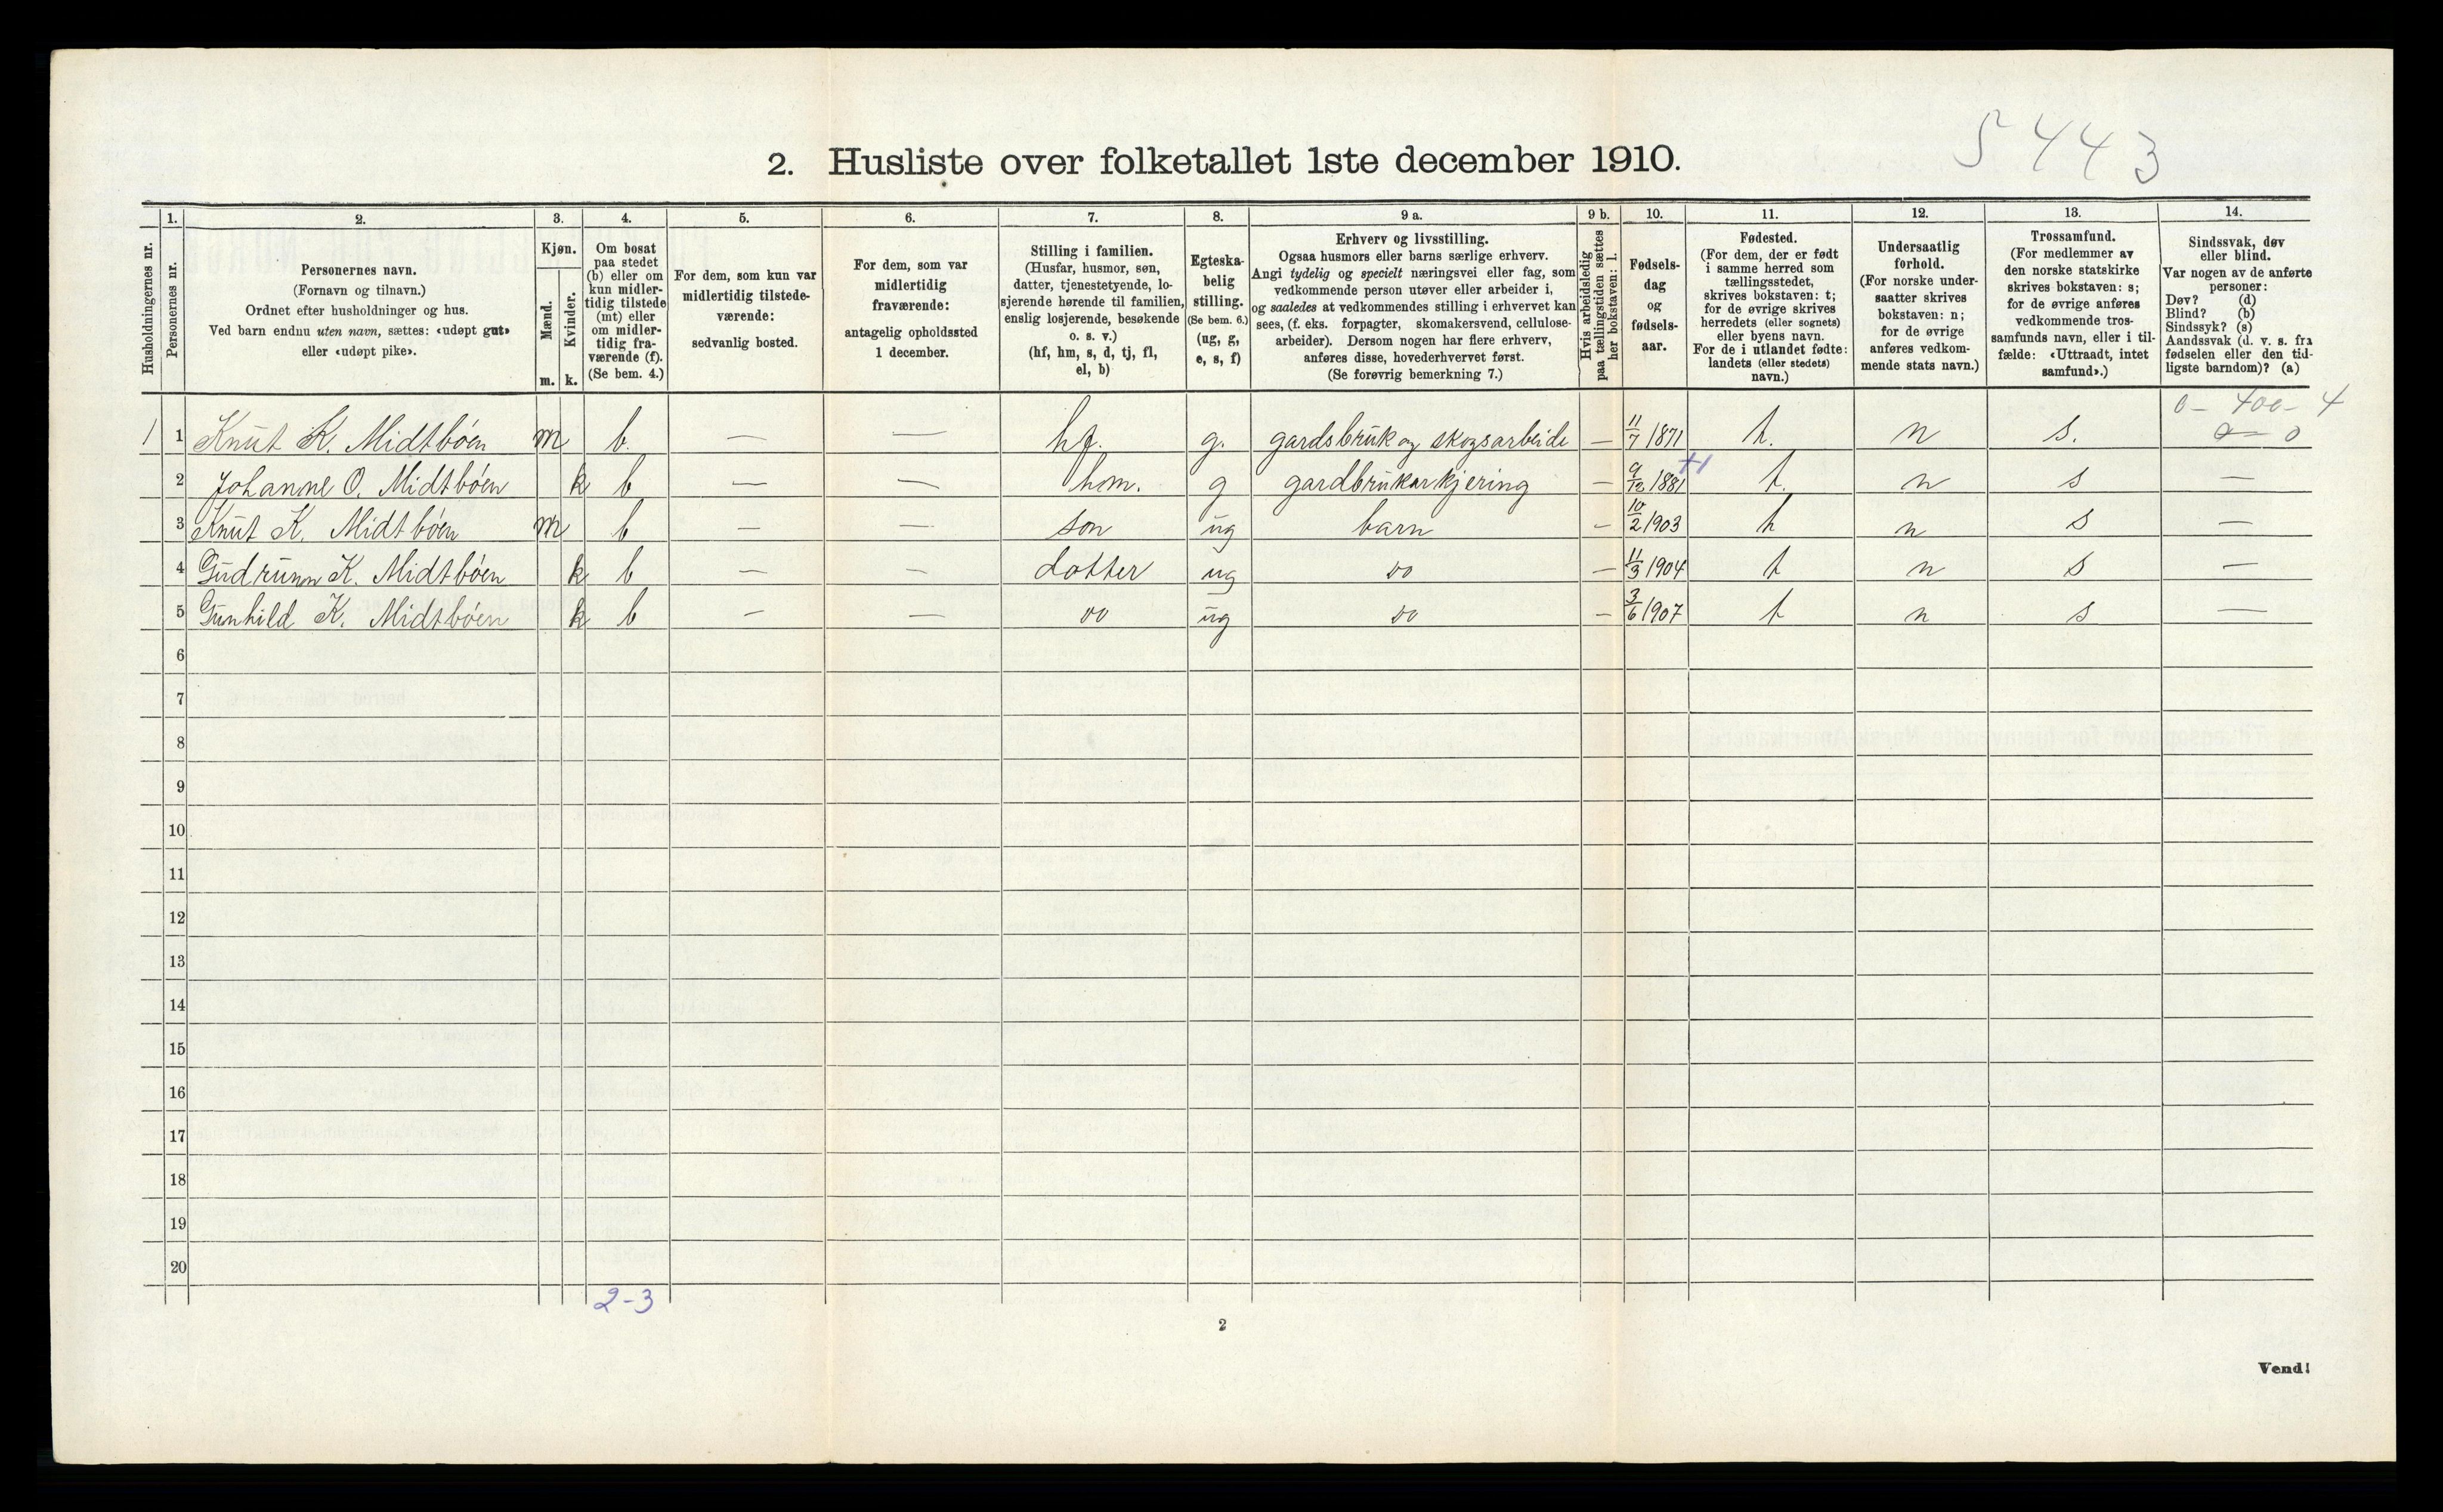 5443
2. Husliste over folketallet 1ste december 1910.
Husholdningernes nr.
1. Personernes nr.
2. Personernes navn. (Fornavn og tilnavn.) Ordnet efter husholdninger og hus. Ved barn endnu uten navn, sættes: «udøpt gut» eller «udøpt pike».
3. Kjøn. Mænd. m. Kvinder. k.
4. Om bosat paa stedet (b) eller om kun midlertidig tilstede (mt) eller om midlertidig fraværende (f). (Se bem. 4.)
5. For dem, som kun var midlertidig tilstedeværende: sedvanlig bosted.
6. For dem, som var midlertidig fraværende: antagelig opholdssted 1 december.
7. Stilling i familien. (Husfar, husmor, søn, datter, tjenestetyende, losjerende hørende til familien, enslig losjerende, besøkende o. s. v.) (hf, hm, s, d, tj, fl, el, b)
8. Egteskabelig stilling. (Se bem. 6.) (ug, g, e, s, f)
9 a. Erhverv og livsstilling. Ogsaa husmors eller barns særlige erhverv. Angi tydelig og specielt næringsvei eller fag, som vedkommende person utøver eller arbeider i, og saaledes at vedkommendes stilling i erhvervet kan sees, (f. eks. forpagter, skomakersvend, cellulosearbeider). Dersom nogen har flere erhverv, anføres disse, hovederhvervet først. (Se forøvrig bemerkning 7.)
9 b. Hvis arbeidsledig paa tællingstiden sættes her bokstaven: l.
10. Fødselsdag og fødselsaar.
11. Fødested. (For dem, der er født i samme herred som tællingsstedet, skrives bokstaven: t; for de øvrige skrives herredets (eller sognets) eller byens navn. For de i utlandet fødte: landets (eller stedets) navn.)
12. Undersaatlig forhold. (For norske undersaatter skrives bokstaven: n; for de øvrige anføres vedkommende stats navn.)
13. Trossamfund. (For medlemmer av den norske statskirke skrives bokstaven: s; for de øvrige anføres vedkommende trossamfunds navn, eller i tilfælde: «Uttraadt, intet samfund».)
14. Sindssvak, døv eller blind. Var nogen av de anførte personer: Døv? (d) Blind? (b) Sindssyk? (s) Aandssvak (d. v. s. fra fødselen eller den tidligste barndom)? (a)
0 - 400 - 4
1 1 Knut K. Midtböen m b. — — hf. g. gardsbruk og skogsarbeide — 11/7 1871 t. n s. 0
2 Johanne O. Midtböen k b — — hm. g gardbrukarkjering — 9/12 1881 t. n s —
3 Knut K. Midtböen m b — — son ug barn - 10/2 1903 t n s —
4 Gudrunn K. Midtböen k b — — dotter ug do — 11/3 1904 t n s —
5 Gunhild K. Midtböen k b - — do ug do — 3/6 1907 t n s —
6
7
8
9
10
11
12
13
14
15
16
17
18
19
20
2-3
2
Vend!